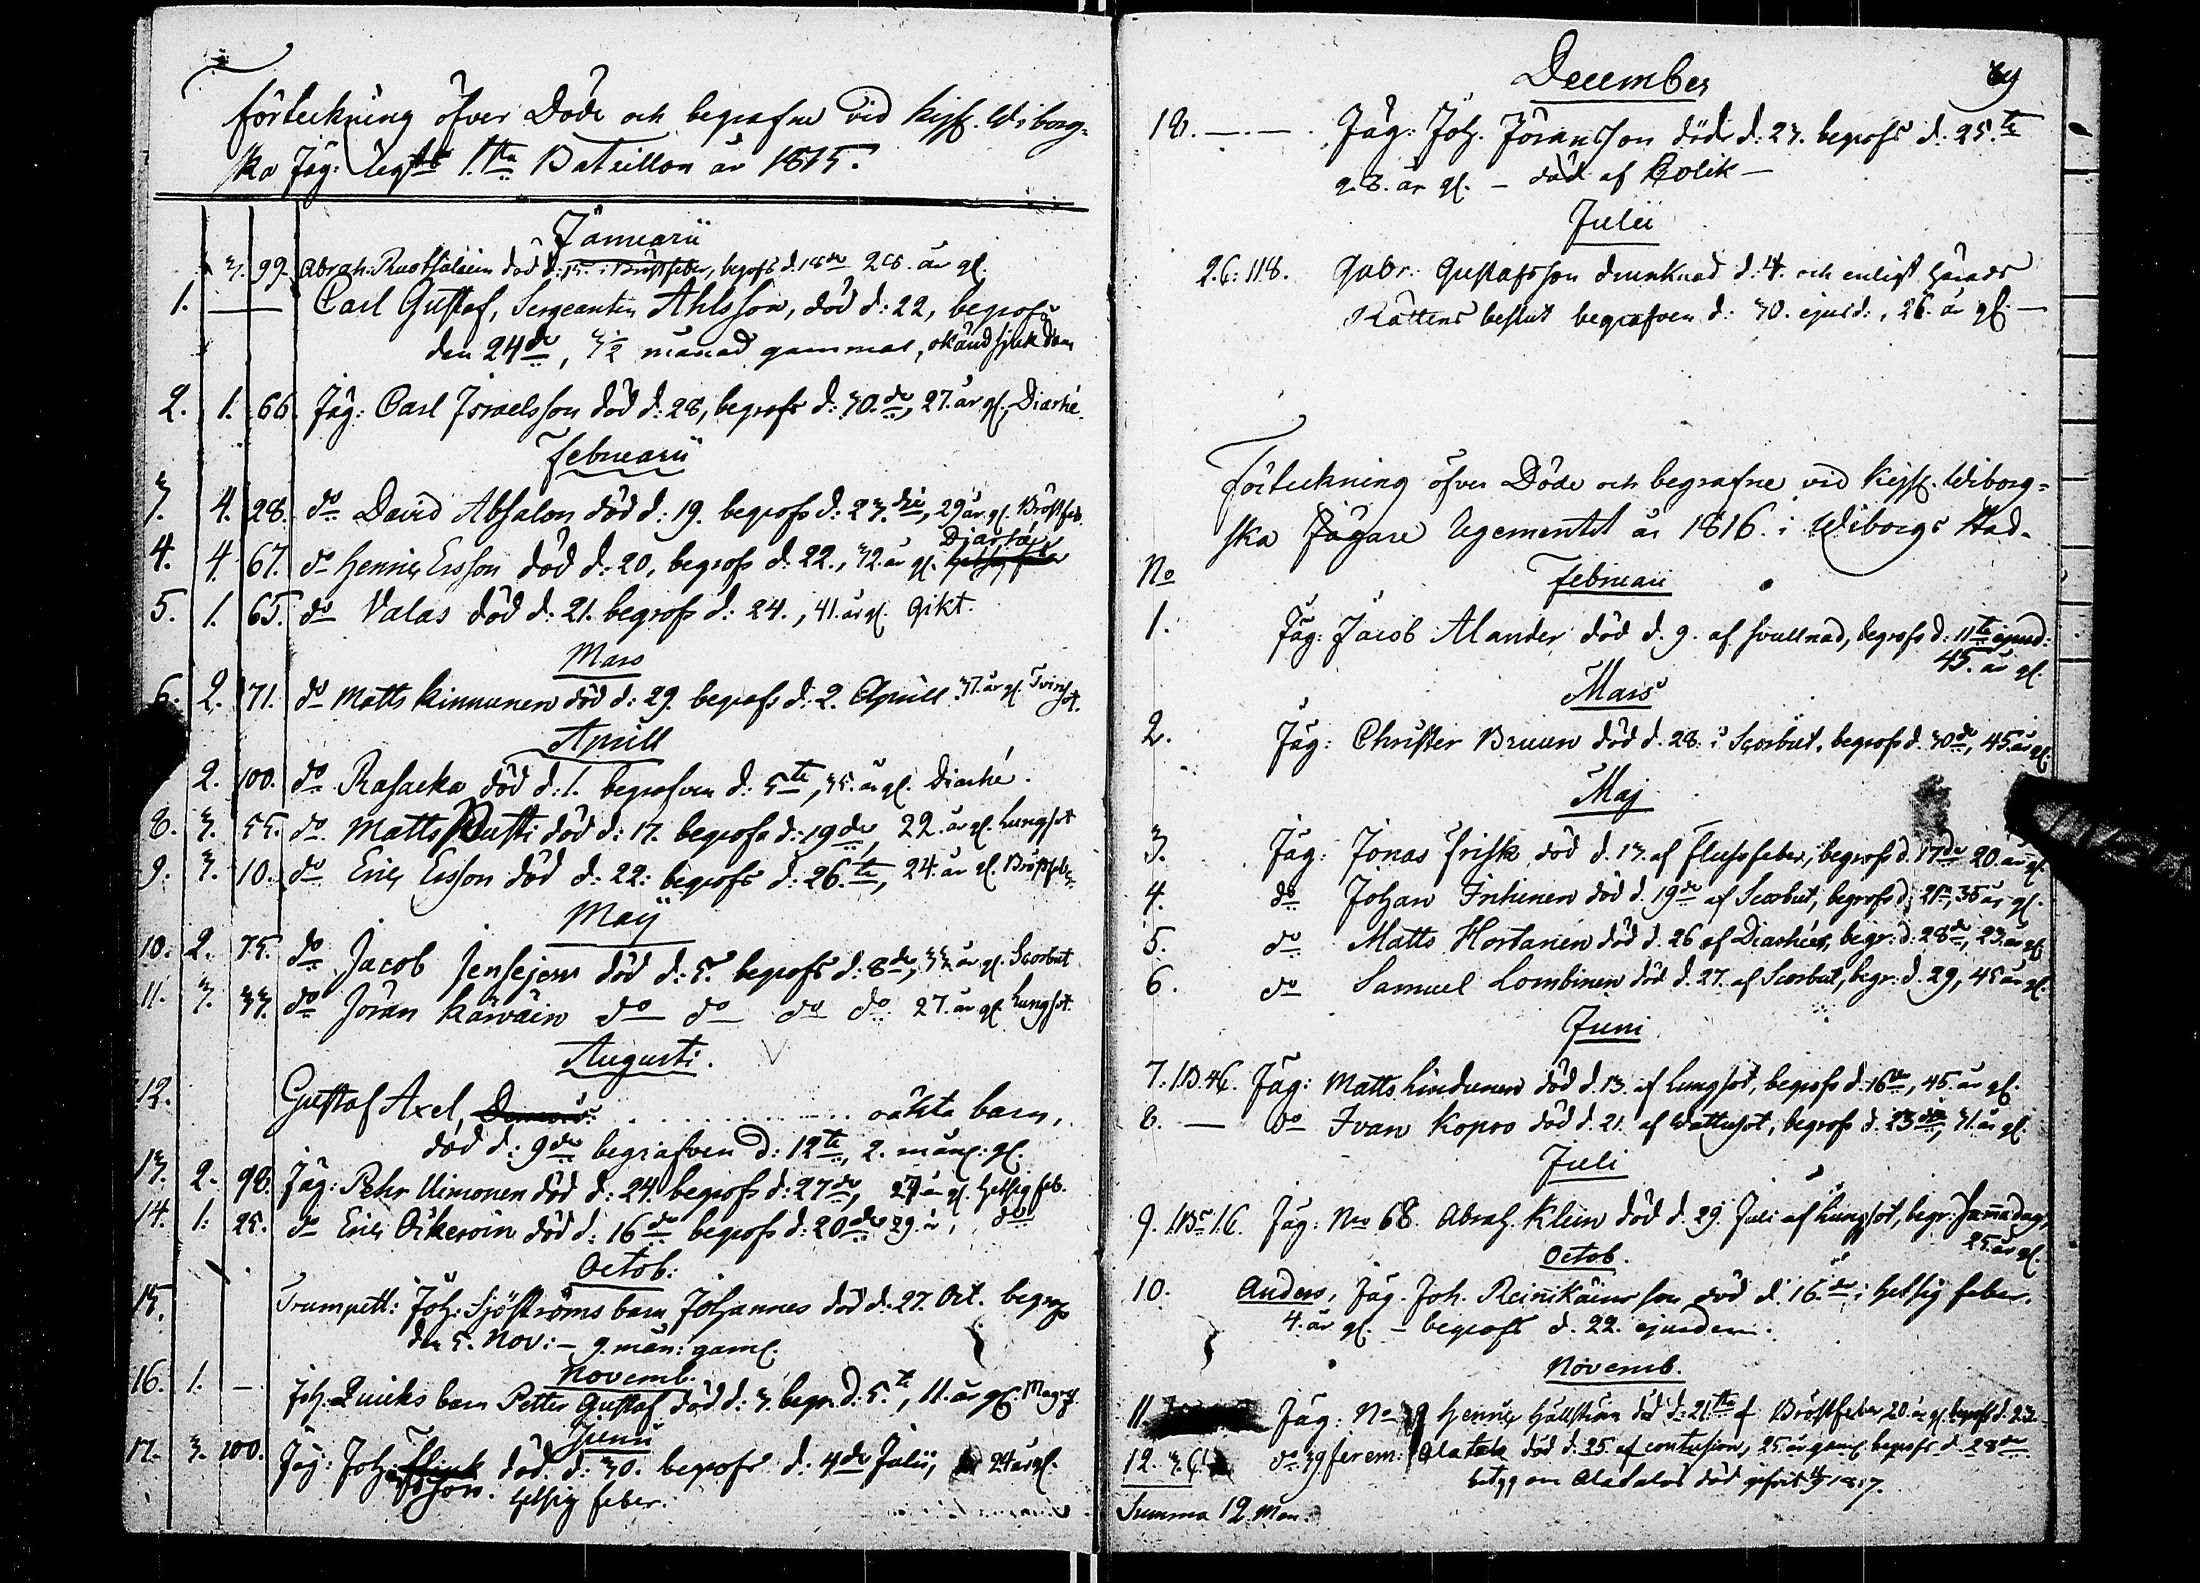 Förteckning öfver Döde och begrafne vid Kejs. Wiborg-
ska Jäg: Regts 1.ta Bataillon år 1815.
Januarii
3. 99. Abrah: död d: 15. i Bröstfeber, begrofs d. 18de 28. år gl.
1. — Carl Gustaf, Sergeanten Ahlsson, död d: 22, begrofs
den 24de, 3½ månad gammal, okänd sjukdom
2. 1. 66. Jäg: Carl Israelsson död d: 28, begrofs d: 30.de, 27. år gl. Diarhé.
Februarii
3. 4. 28. do David Absalon död d: 19. begrofs d: 23.die, 29 år gl. Bröstfeb.
4. 4. 67. do Henric Ersson död d: 20, begrofs d: 22., 32. år gl. Diarhé
5. 1. 65. do Valas död d: 21. begrofs d: 24., 41. år gl. Gikt.
Mars
6. 2. 71. do Matts Kinnunen död d: 29. begrofs d: 2. Aprill 37. år gl. Tvinsot.
Aprill
2. 100. do Rasacka död d: 1. begrafven d: 5te, 35. år gl. Diarhé.
8. 3. 55. do Matts Rutti död d: 17. begrofs d: 19de, 22. år gl. Lungsot
9. 3. 10. do Eric Ersson död d: 22: begrofs d: 26.te, 24. år gl. Bröstfeb.
Maij
10. 2. 75. do Jacob död d: 5. begrofs d: 8de, 33 år gl. Scorbut
11. 3. 33. do Jöran Karväin do do do do 27. år gl. Lungsot.
Augusti.
12. Gustaf Axel, oäkta barn,
död d: 9de begrafven d: 12te, 2. mån: gl.
13. 2. 98. Jäg: Pehr Uimonen död d: 24. begrofs d: 27de, 27 år gl. Hetsig feb.
14. 1. 25. do Eric död d: 16de begrofs d: 20de 29. år, do
Octob:
15. Trumpett: Joh: Sjöströms barn Johannes död d: 27. Oct. begrofs
den 5. Nov: – 9. mån: gaml.
Novemb.
16. 1. – Joh: Quicks barn Petter Gustaf död d: 3. begr. d: 5.te, 11. år gl.
Junii
17. 3. 100. Jäg: Joh: död d: 30. begrofs d: 4de Julii, 24 år gl.
Hetsig feber.
December
18. — — Jäg: Joh. Jöransson död d: 23. begrofs d: 25.te
28. år gl. – död af Kolik —
Julii
2.C: 118. Gabr: Gustafsson drunknad d: 4. och enligt Härads
Rättens beslut begrafven d: 30. ejusd:, 26. år gl. —
Förteckning öfver Döde och begrafne vid Kejs. Wiborg-
ska Jägare Regementet år 1816. i Wiborgs Stad.
No
Februarii
1. Jäg: Jacob Alander död d. 9. af svullnad, begrofs d: 11te ejusd:
45. år gl.
Mars
2. Jäg: Christer Bruun död d. 28. i Scorbut, begrofs d. 30de, 45. år gl.
Maj
3. Jäg: Jonas Frisk död d. 13. af Flussfeber, begrofs d. 17de 20. år gl.
4. do Johan Inhinen död d. 19de af Scorbut, begrofs d: 21, 35 år gl.
5. do Matts Hortanen död d. 26 af Diarhée, begr: d: 28de, 23. år gl.
6. do Samuel Lombinen död d. 27. af Scorbut, begr: d. 29, 45 år gl.
Juni
7. 1.B. 4C. Jäg: Matts Lindunen död d. 13. af Lungsot, begrofs d: 16de, 45. år gl.
8. — do Ivan Kopro död d. 21. af Wattusot, begrofs d. 23die, 31. år gl.
Juli
9. 1.B. 1.C. Jäg: No 68. Abrah. Klein död d. 29. Juli af Lungsot, begr: samma dag,
25. år gl.
Octob.
10. Anders, Jäg. Joh. Reinikäins son död d: 16.de i Hetsig feber.
4. år gl. – begrofs d. 22. ejusdem.
Novemb.
11. Jäg: No Henric Hällström död d: 21.te af Bröstfeber 20. år gl. begrofs d. 23
12. 3.C. do 39 Jerem: Alatalo död d. 25 af contusion, 25. år gaml. begrofs d. 28de
betyg om Alatalos död
Summa 12. Man.